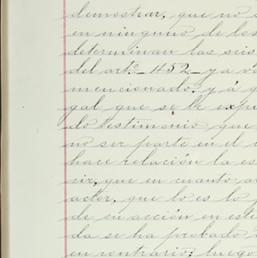 demostrar, que no e
en ninguno de los
determinan las seis
del artº 452 ya v
mencionado? y á
gal que se le exp
do testimonio que
no ser parte en el
hace relación la es
cir, que en cuanto a
actor, que lo es lo
de su acción en est
da se ha probado
en contrario; luego